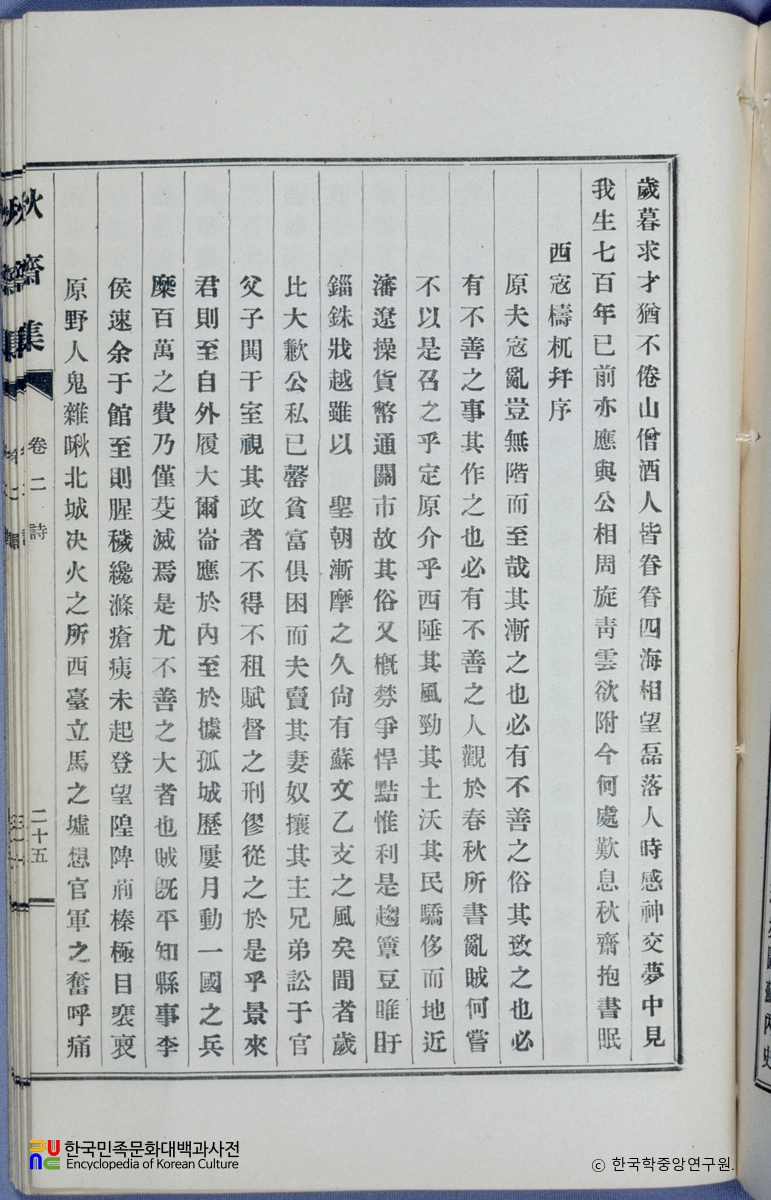 歲暮求才猶不倦山僧酒人皆眷眷四海相望磊落人時感神交夢中見
我生七百年已前亦應與公相周旋靑雲欲附今何處歎息秋齋抱書眠
西寇檮杌幷序
原夫寇亂豈無階而至哉其漸之也必有不善之俗其致之也必
有不善之事其作之也必有不善之人觀於春秋所書亂賊何嘗
不以是召之乎定原介乎西陲其風勁其土沃其民驕侈而地近
瀋遼操貨幣通關市故其俗又槪勢爭悍黠惟利是趨簞豆睢盱
錙銖戕越雖以 聖朝漸摩之久尙有蘇文乙支之風矣間者歲
比大歉公私已罄貧富俱困而夫賣其妻奴攘其主兄弟訟于官
父子閧于室視其政者不得不租賦督之刑僇從之於是乎景來
君則至自外履大爾崙應於內至於據孤城歷屢月動一國之兵
糜百萬之費乃僅芟滅焉是尤不善之大者也賊旣平知縣事李
侯速余于館至則腥穢纔滌瘡痍未起登望隍陴荊榛極目裵裒
原野人鬼雜啾北城決火之所西臺立馬之墟想官軍之奮呼痛
秋齋集 卷二 詩 二十五
한국민족문화대백과사전
Encyclopedia of Korean Culture
© 한국학중앙연구원.